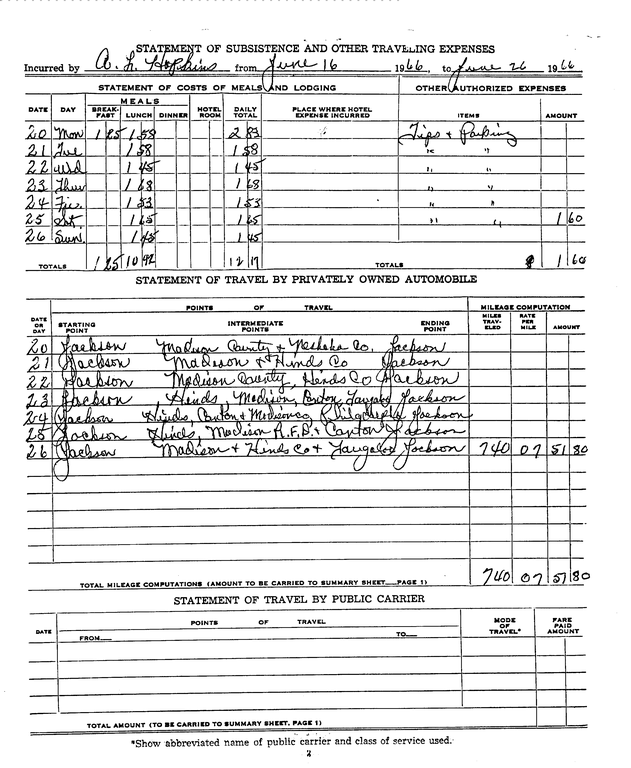 STATEMENT OF SUBSISTENCE AND OTHER TRAVELING EXPENSES
Incurred by A. L. Hopkins from June 16 1966, to June 26 1966
STATEMENT OF COSTS OF MEALS AND LODGING OTHER AUTHORIZED EXPENSES
DATE DAY MEALS BREAK-FAST LUNCH DINNER HOTEL ROOM DAILY TOTAL PLACE WHERE HOTEL EXPENSE INCURRED ITEMS AMOUNT
20 Mon 1 25 1 58 2 83 Tips & Parking
21 Tue 1 58 1 58 " "
22 Wed 1 45 1 45 " "
23 Thur 1 68 1 68 " "
24 Fri. 1 53 1 53 " "
25 Sat. 1 65 1 65 " " 1 60
26 Sun. 1 45 1 45
TOTALS 1 25 10 92 12 17 TOTALS $ 1 60
STATEMENT OF TRAVEL BY PRIVATELY OWNED AUTOMOBILE
POINTS OF TRAVEL MILEAGE COMPUTATION
DATE OR DAY STARTING POINT INTERMEDIATE POINTS ENDING POINT MILES TRAV-ELED RATE PER MILE AMOUNT
20 Jackson Madison County & Neshoba Co. Jackson
21 Jackson Madison & Hinds Co Jackson
22 Jackson Madison County, Hinds Co Jackson
23 Jackson Hinds, Madison, Canton, Tougaloo Jackson
24 Jackson Hinds, Canton & Madison Co, Philadelphia Jackson
25 Jackson Hinds, Madison R.F.D. & Canton Jackson
26 Jackson Madison & Hinds Co & Tougaloo Jackson 740 07 51 80
TOTAL MILEAGE COMPUTATIONS (AMOUNT TO BE CARRIED TO SUMMARY SHEET PAGE 1) 740 07 51 80
STATEMENT OF TRAVEL BY PUBLIC CARRIER
DATE POINTS OF TRAVEL MODE OF TRAVEL* FARE PAID AMOUNT
FROM TO
TOTAL AMOUNT (TO BE CARRIED TO SUMMARY SHEET, PAGE 1)
*Show abbreviated name of public carrier and class of service used.
2